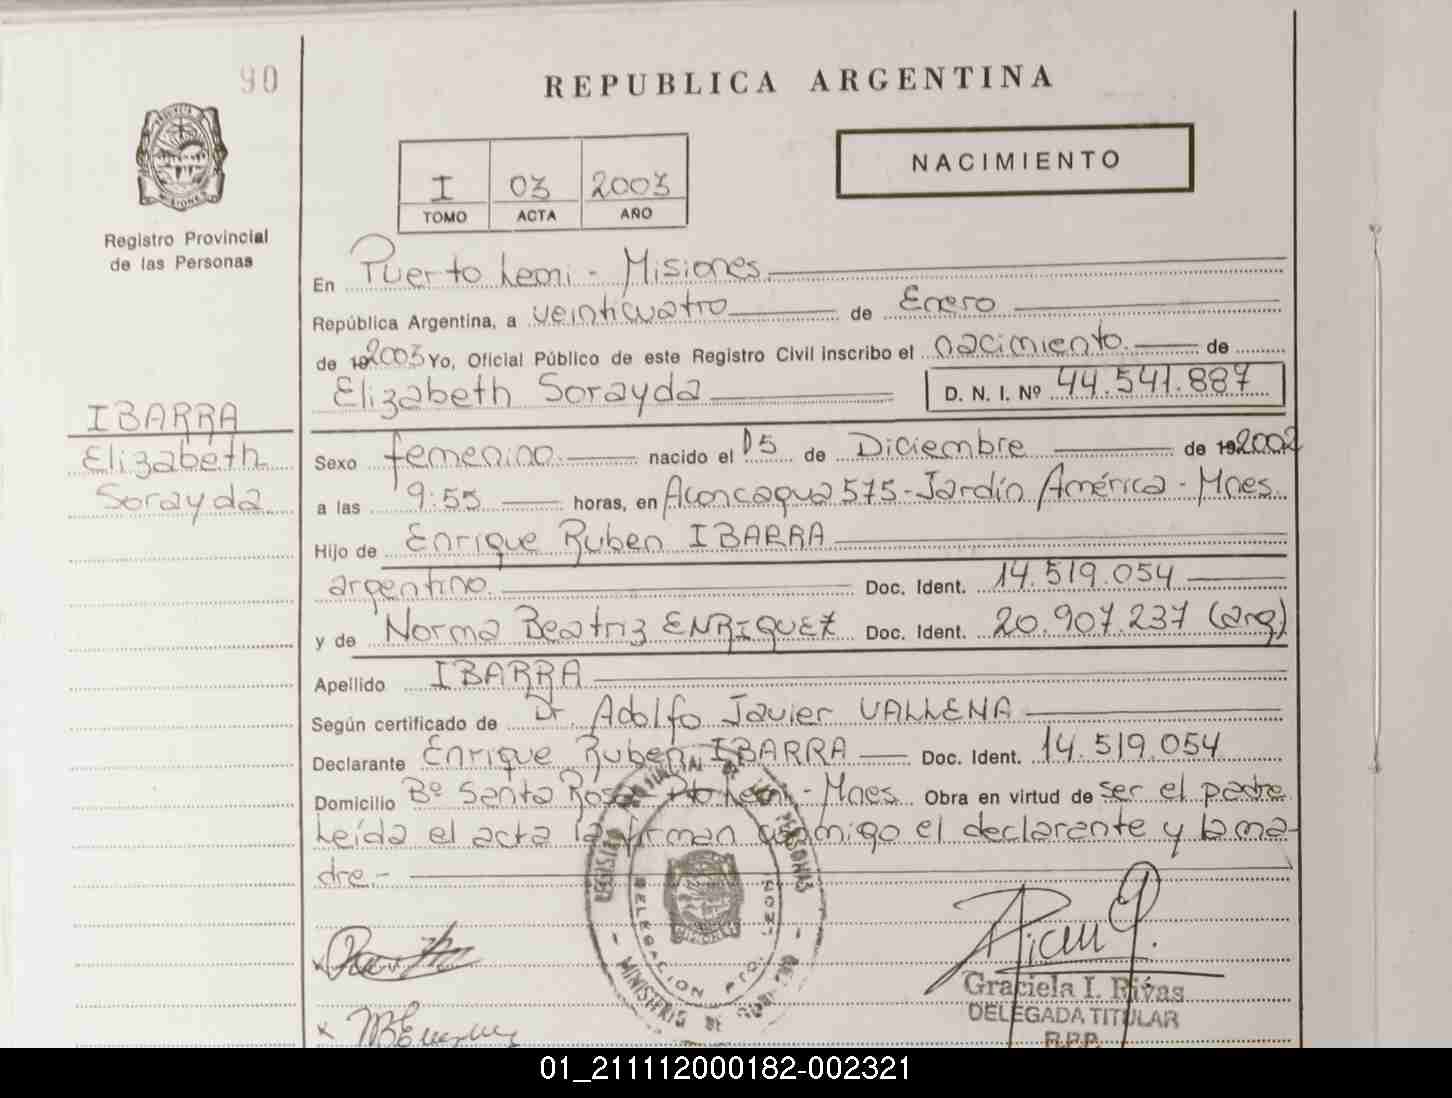 90
REPUBLICA ARGENTINA
NACIMIENTO
I 03 2003
TOMO ACTA AÑO
Registro Provincial
de las Personas
En Puerto Leoni - Misiones
República Argentina, a veinticuatro de Enero
de 192003 Yo, Oficial Público de este Registro Civil inscribo el nacimiento de
Elizabeth Sorayda D. N. I. Nº 44.541.887
IBARRA
Elizabeth
Sorayda
Sexo femenino nacido el 05 de Diciembre de 192002
a las 9:55 horas, en Aconcagua 575 - Jardín América - Mnes.
Hijo de Enrique Ruben IBARRA
argentino. Doc. Ident. 14.519.054
y de Norma Beatriz ENRIQUEZ Doc. Ident. 20.907.237 (arg)
Apellido IBARRA
Según certificado de Dr. Adolfo Javier VALLENA
Declarante Enrique Ruben IBARRA Doc. Ident. 14.519.054
Domicilio Bº Santa Rosa - Pto Leoni - Mnes. Obra en virtud de ser el padre
Leída el acta la firman conmigo el declarante y la ma-
dre.-
REGISTRO PROVINCIAL DE LAS PERSONAS
DELEGACION PTO. LEONI
MISIONES
- MINISTERIO DE GOBIERNO -
Graciela I. Rivas
DELEGADA TITULAR
R.P.P.
01_211112000182-002321